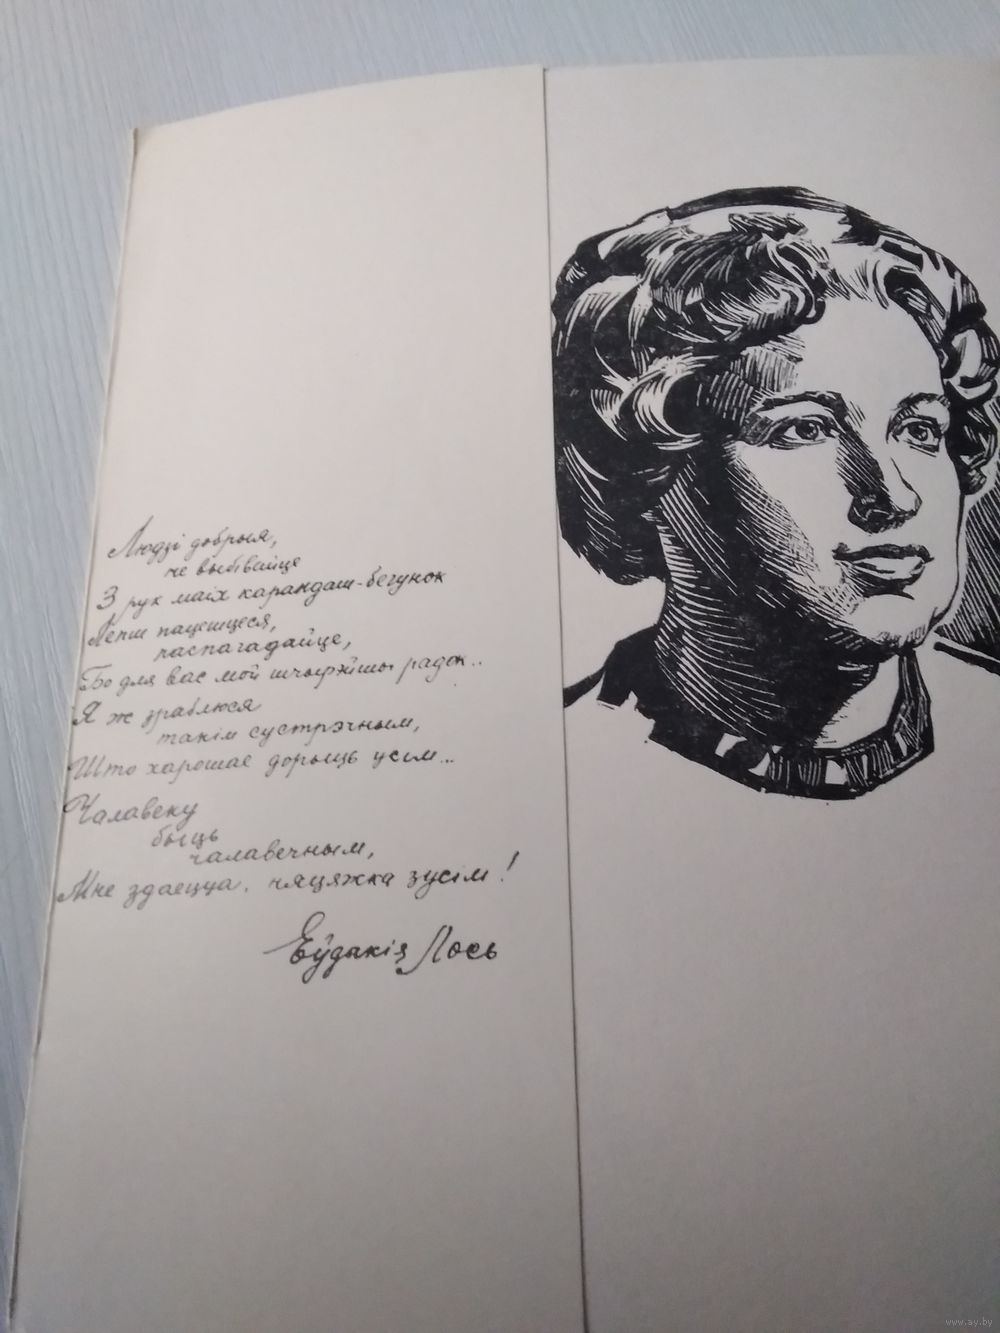 Людзі добрыя,
не выбівайце
З рук маіх карандаш-бегунок
Лепш пацешцеся,
паспагадайце,
Бо для вас мой шчырэйшы радок..
Я ж зраблюся
такім сустрэчным,
Што харошае дорыць усім...
Чалавеку
быць
чалавечным,
Мне здаецца, няцяжка зусім!
Еўдакія Лось
www.ay.by